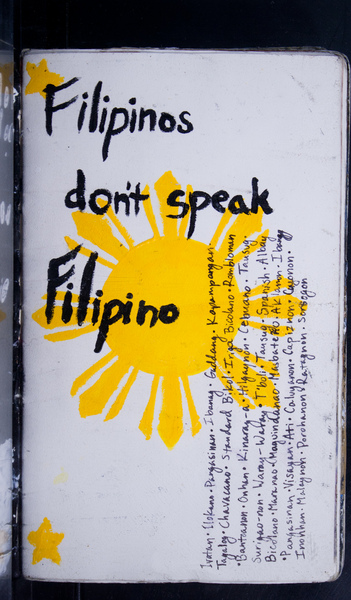 Filipinos
don't speak
Filipino
Ivatan · Ilokano · Pangasinan · Ibanag · Gaddang · Kapampangan ·
Tagalog · Chavacano · Standard Bikol · Bicolano · Romblomon
· Bantoanon · Onhan · Kinaray-a · Hiligaynon · Cebuano · Tausug ·
Surigao-non · Waray-Waray · T'boli · Tausug · Spanish · Albay
Bicolano · Maranao · Maguindanao · Masbateño · Aklanon · Ibanag
· Pangasinam · Visayan · Ati · Caluyanon · Capiznon · Cuyonon ·
Inonhan · Malaynon · Porohanon · Ratagnon · Sorsogon